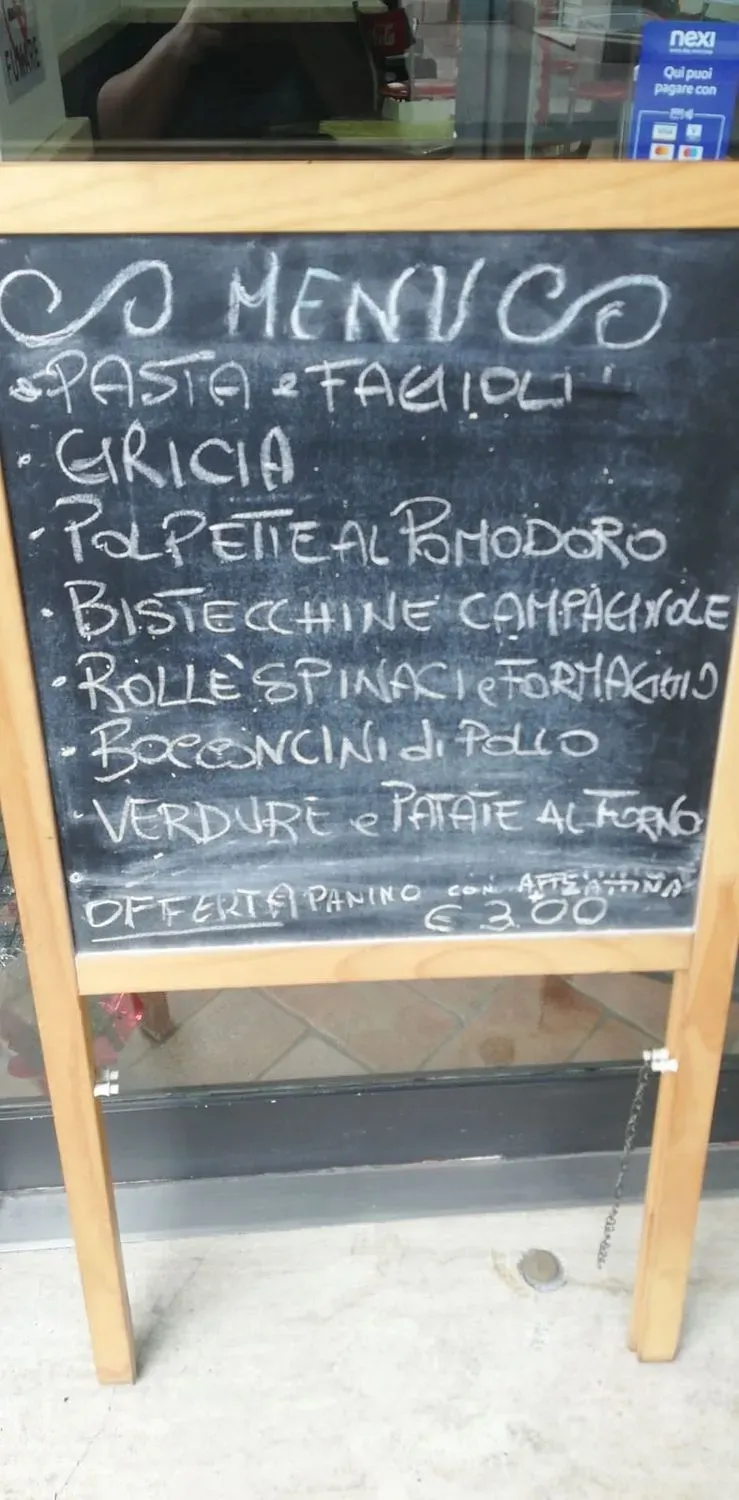 FUMARE
nexi
Qui puoi
pagare con
VISA
MENU
PASTA e FAGIOLI
GRICIA
POLPETTE AL POMODORO
BISTECCHINE CAMPAGNOLE
ROLLÈ SPINACI e FORMAGGIO
BOCCONCINI di POLLO
VERDURE e PATATE AL FORNO
OFFERTA PANINO CON AFFETTATI
€ 3.00